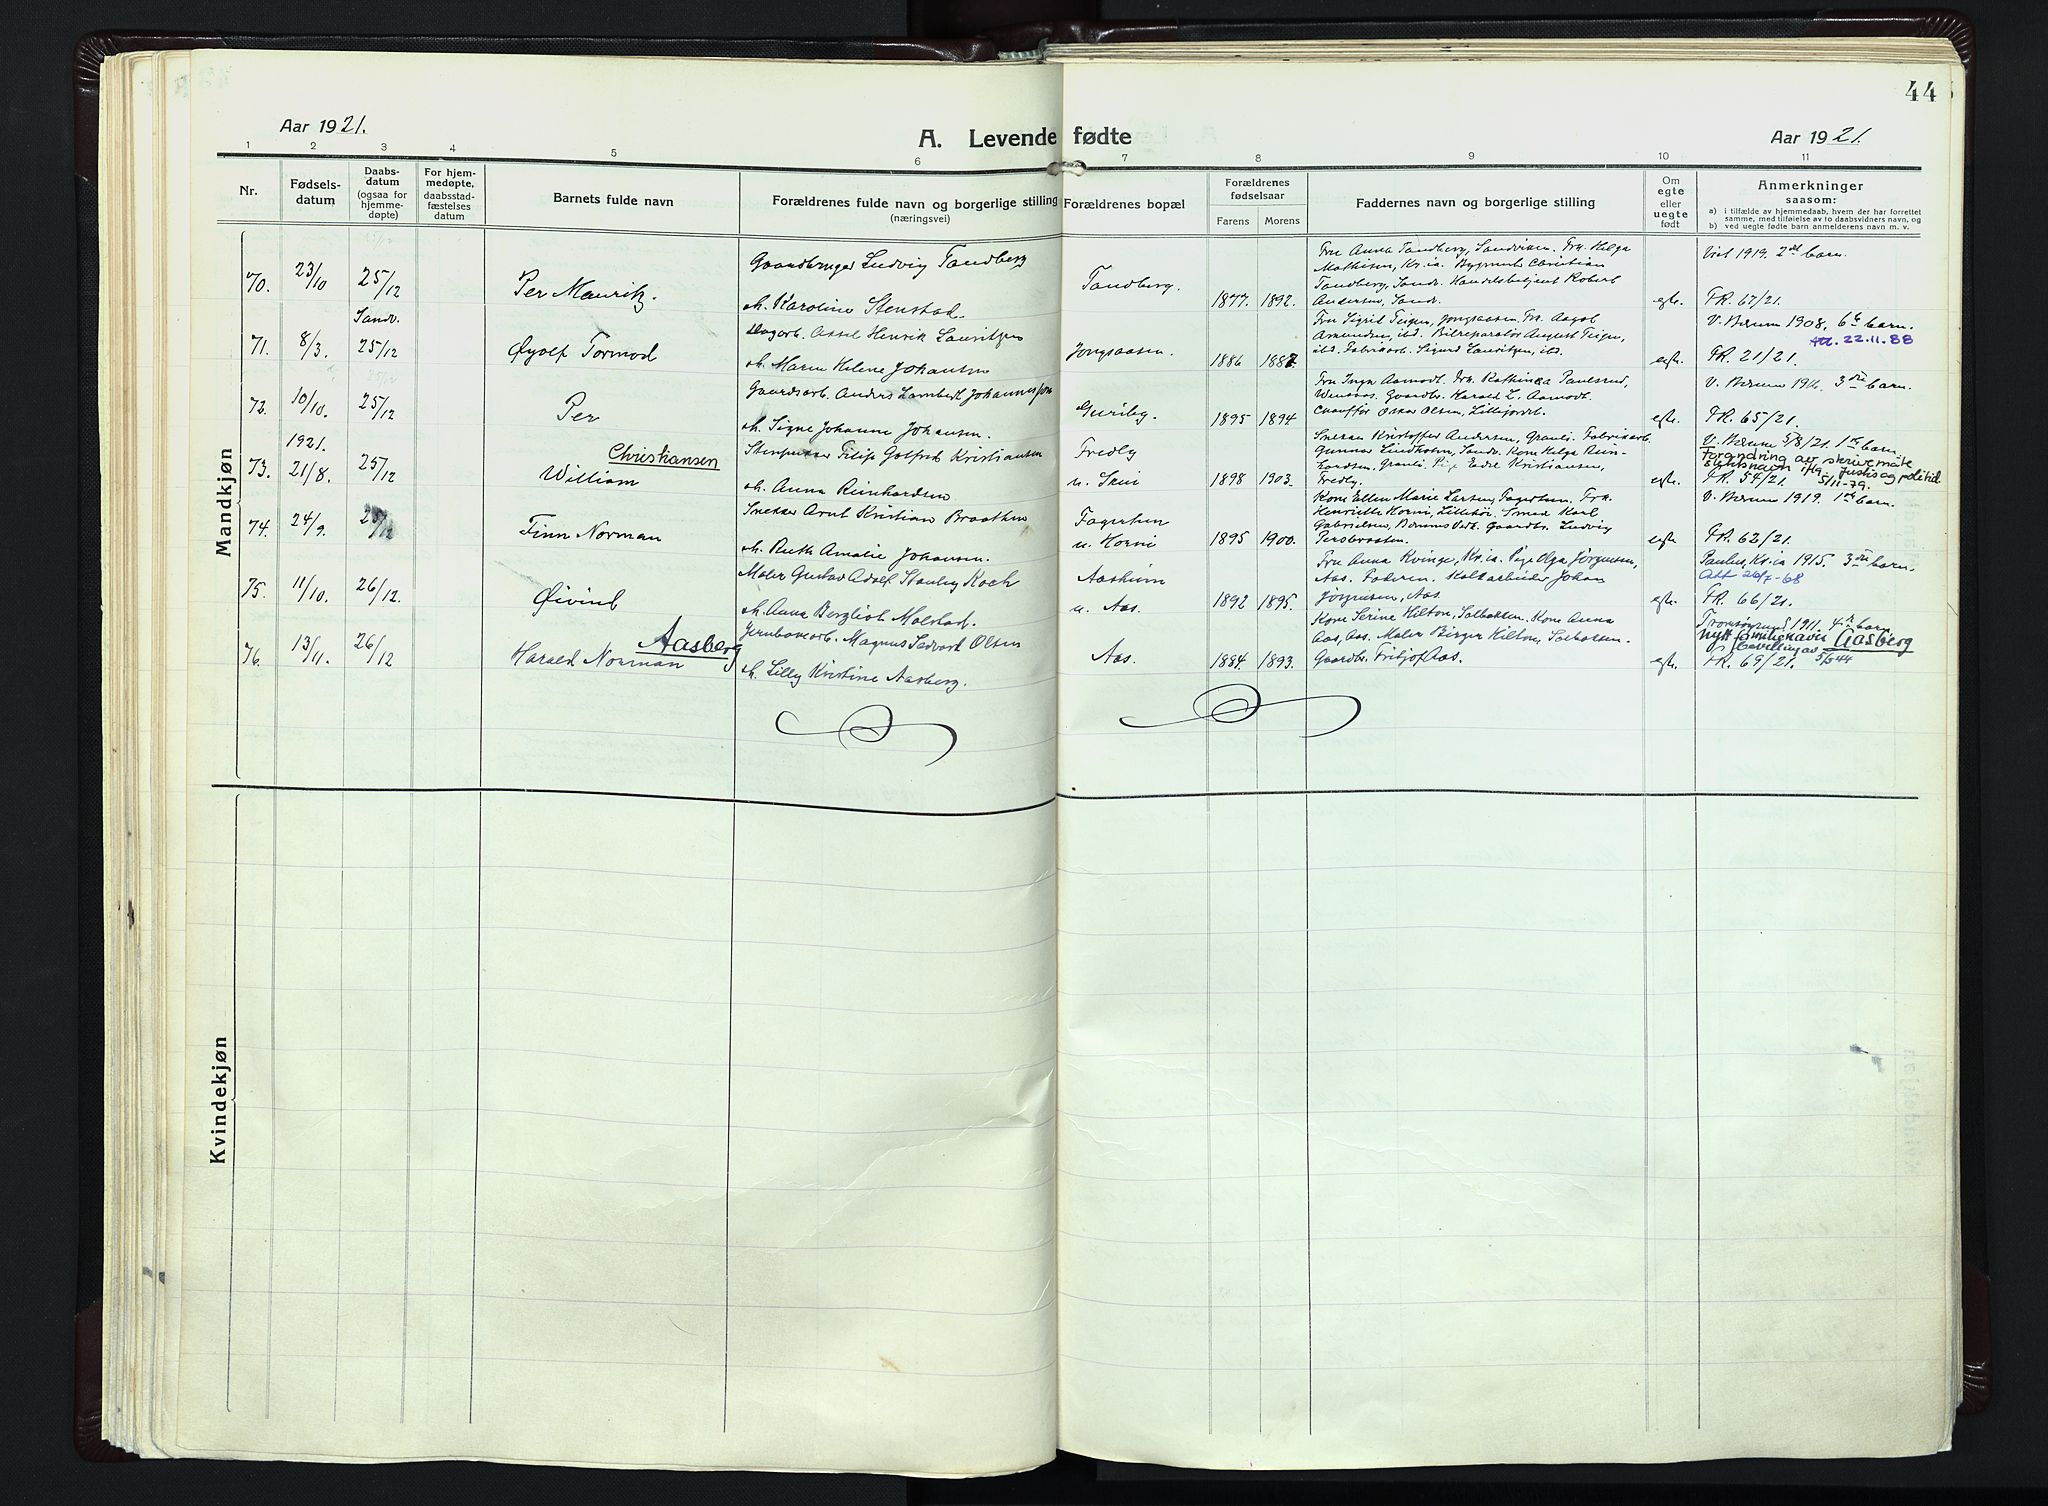 44
Aar 1921.
A. Levende fødte
Aar 1921.
1 2 3 4 5 6 7 8 9 10 11
Nr.
Fødsels-
datum
Daabs-
datum
(ogsaa for
hjemme-
døpte)
For hjem-
medøpte,
daabsstad-
fæstelses
datum
Barnets fulde navn
Forældrenes fulde navn og borgerlige stilling
(næringsvei)
Forældrenes bopæl
Forældrenes
fødselsaar
Farens Morens
Faddernes navn og borgerlige stilling
Om
egte
eller
uegte
født
Anmerkninger
saasom:
a) i tilfælde av hjemmedaab, hvem der har forrettet
samme, med tilføielse av to daabsvidners navn, og
b) ved uegte fødte barn anmelderens navn m. v.
Mandkjøn
70. 23/10 25/12
Sandv.
Per Mauritz.
Gaardbruger Ludvig Tandberg
h. Karoline Stenstad.
Tandberg.
1877. 1892.
Fru Anna Tandberg, Sandviken. Frk. Helga
Mathisen, Kr.ia. Bygmester Christian
Tandberg, Sandv. Handelsbetjent Robert
Andersen, Sandv.
egte.
Viet 1919. 2det barn.
FR. 67/21.
71. 8/3. 25/12
Øyolf Tormod
Dagarb. Aksel Henrik Lauritzen
h. Maren Helene Johansen
Jongsaasen.
1886 1887.
Fru Sigrid Teigen, Jongsaasen. Frk. Aagot
Amundsen, ibd. Bilreparatør August Teigen,
ibd. Fabrikarb. Sigurd Lauritzen, ibd.
egte.
V. Bærum 1908. 6te barn.
Att. 22.11.88
FR. 21/21.
72. 10/10. 25/12
Per
Gaardsarb. Anders Lambert Johannessen
h. Signe Johanne Johansen.
Guriby.
1895 1894
Fru Inga Aamodt. Frk. Kathinka Paulsrud,
Gaardbr. Harald L. Aamodt.
Chauffør Oskar Olsen, Lillejordet.
egte.
V. Bærum 3die barn.
FR. 65/21.
73. 1921.
21/8. 25/12
Christiansen
William
Filip Kristiansen
h. Anna Reinhardsen
Fredly
u. Skui
1898 1903.
Snekker Kristoffer Andersen, Granli. Fabrikarb.
Gunnar Lindholm, Sandv. Kone Helga Rein-
hardsen, Granli. Kristiansen,
Fredly.
egte.
V. Bærum 5/8/21. 1ste barn.
Forandring av skrivemåte
slektsnavn Justis og politid.
5/11-79.
FR. 54/21.
74. 24/9. 25/12
Finn Norman
Snekker Arnt Kristian Braathen
h. Ruth Amalie Johansen.
Fagertun
u. Horni
1895 1900.
Kone Ellen Marie Larsen, Fagertun. Frk.
Henriette Horni, Smed Karl
Gabrielsen, Bærums Verk. Gaardbr. Ludvig
Persbraaten.
egte.
V. Bærum 1919. 1ste barn.
FR. 62/21.
75. 11/10. 26/12.
Øivind
Maler Gustav Adolf Stanley Koch
h. Anna Bergliot Molstad.
Aasheim
u. Aas.
1892 1895.
Fru Anna Kvinge, Kr.ia. Pige Olga Jørgensen,
Aas. Faderen. Johan
Jørgensen, Aas.
egte.
Paulus, Kr.ia 1915. 3die barn.
Att 26/7-68
FR. 66/21.
76. 13/11. 26/12
Aasberg
Harald Norman
Jernbanearb. Magnus Edvard Olsen
h. Lilly Kristine Aasberg.
Aas.
1884. 1893.
Kone Serine Hilton, Solbakken. Kone Anna
Aas, Aas. Maler Birger Hilton, Solbakken.
Gaardbr. Fritjof Aas.
egte.
Tromsøsund 1911. 4de barn
nytt familienavn Aasberg
bevilling av 5/5 44
FR. 69/21.
Kvindekjøn